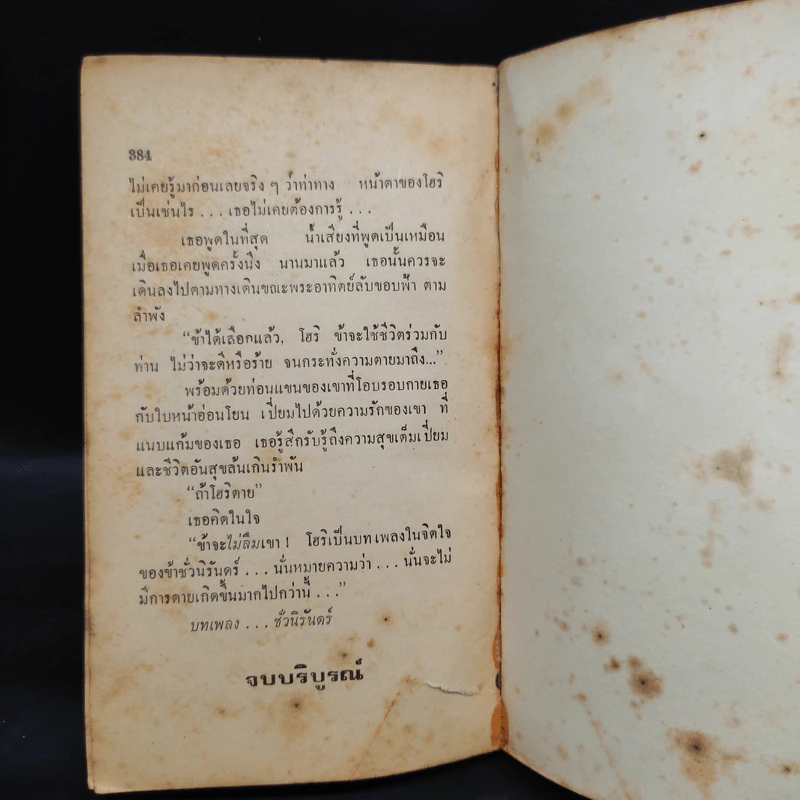 384
ไม่เคยรู้มาก่อนเลยจริง ๆ ว่าท่าทาง หน้าตาของโฮริ
เป็นเช่นไร . . . เธอไม่เคยต้องการรู้ . . .
เธอพูดในที่สุด น้ำเสียงที่พูดเป็นเหมือน
เมื่อเธอเคยพูดครั้งนึง นานมาแล้ว เธอนั้นควรจะ
เดินลงไปตามทางเดินขณะพระอาทิตย์ลับขอบฟ้า ตาม
ลำพัง
“ข้าได้เลือกแล้ว, โฮริ ข้าจะใช้ชีวิตร่วมกับ
ท่าน ไม่ว่าจะดีหรือร้าย จนกระทั่งความตายมาถึง...”
พร้อมด้วยท่อนแขนของเขาที่โอบรอบกายเธอ
กับใบหน้าอ่อนโยน เปี่ยมไปด้วยความรักของเขา ที่
แนบแก้มของเธอ เธอรู้สึกรับรู้ถึงความสุขเต็มเปี่ยม
และชีวิตอันสุขล้นเกินรำพัน
“ถ้าโฮริตาย”
เธอคิดในใจ
“ข้าจะไม่ลืมเขา ! โฮริเป็นบทเพลงในจิตใจ
ของข้าชั่วนิรันดร์ . . . นั่นหมายความว่า . . . นั่นจะไม่
มีการตายเกิดขึ้นมากไปกว่านี้ . . .”
บทเพลง . . . ชั่วนิรันดร์
จบบริบูรณ์